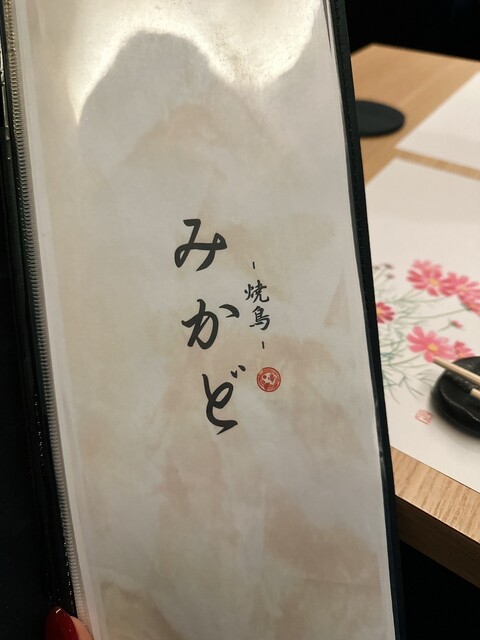 - 焼鳥 -
みかど